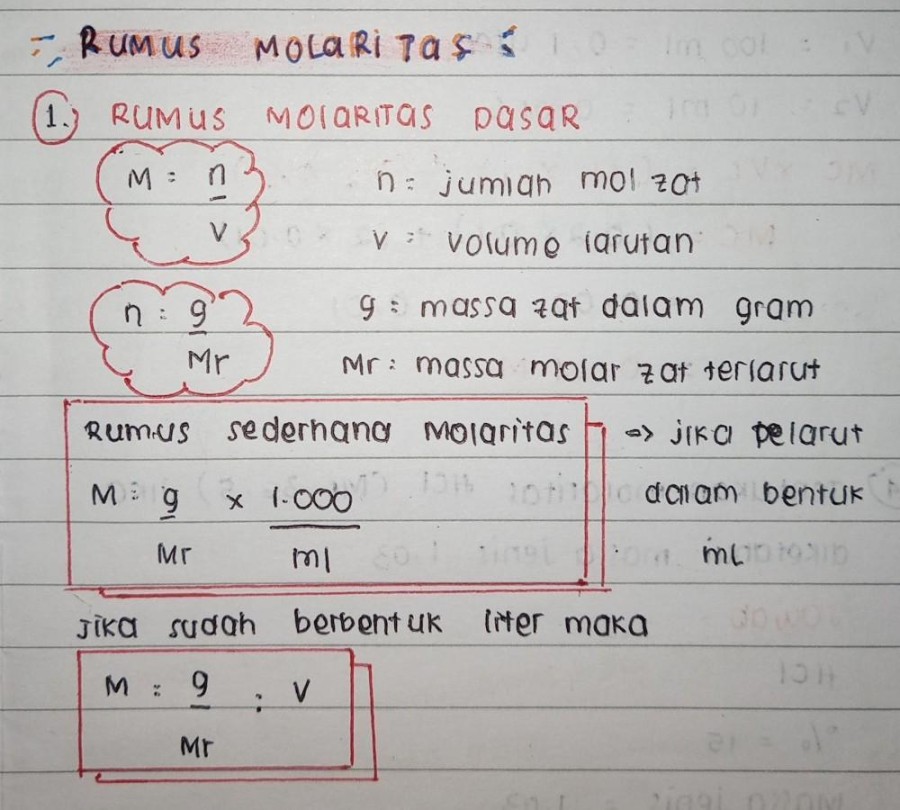 RUMUS MOLARITAS
1. RUMUS MOLARITAS DASAR
M = n n = jumlah mol zat
V v = volume larutan
n = g g = massa zat dalam gram
Mr Mr = massa molar zat terlarut
Rumus sederhana Molaritas ⇒ jika pelarut
M = g x 1.000 dalam bentuk
Mr ml ml
jika sudah berbentuk liter maka
M = g : V
Mr